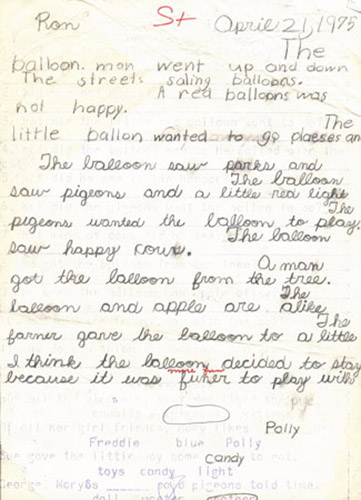 Ron St April 21, 1975
The
balloon. man went up and down
The streets saling balloons.
A red balloons was
not happy.
The
little ballon wanted to go plaeses an
The balloon saw parks and
The balloon
saw pigeons and a little red light
The
pigeons wanted the balloon to play.
The balloon
saw happy cows.
A man
got the balloon from the tree.
The
balloon and apple are alike
The
farner gave the balloon to a little
I think the balloon decided to stay
more fun
because it was funer to play with
Polly
Freddie blue Polly
gove the little boy candy to
toys candy light
George, told time.